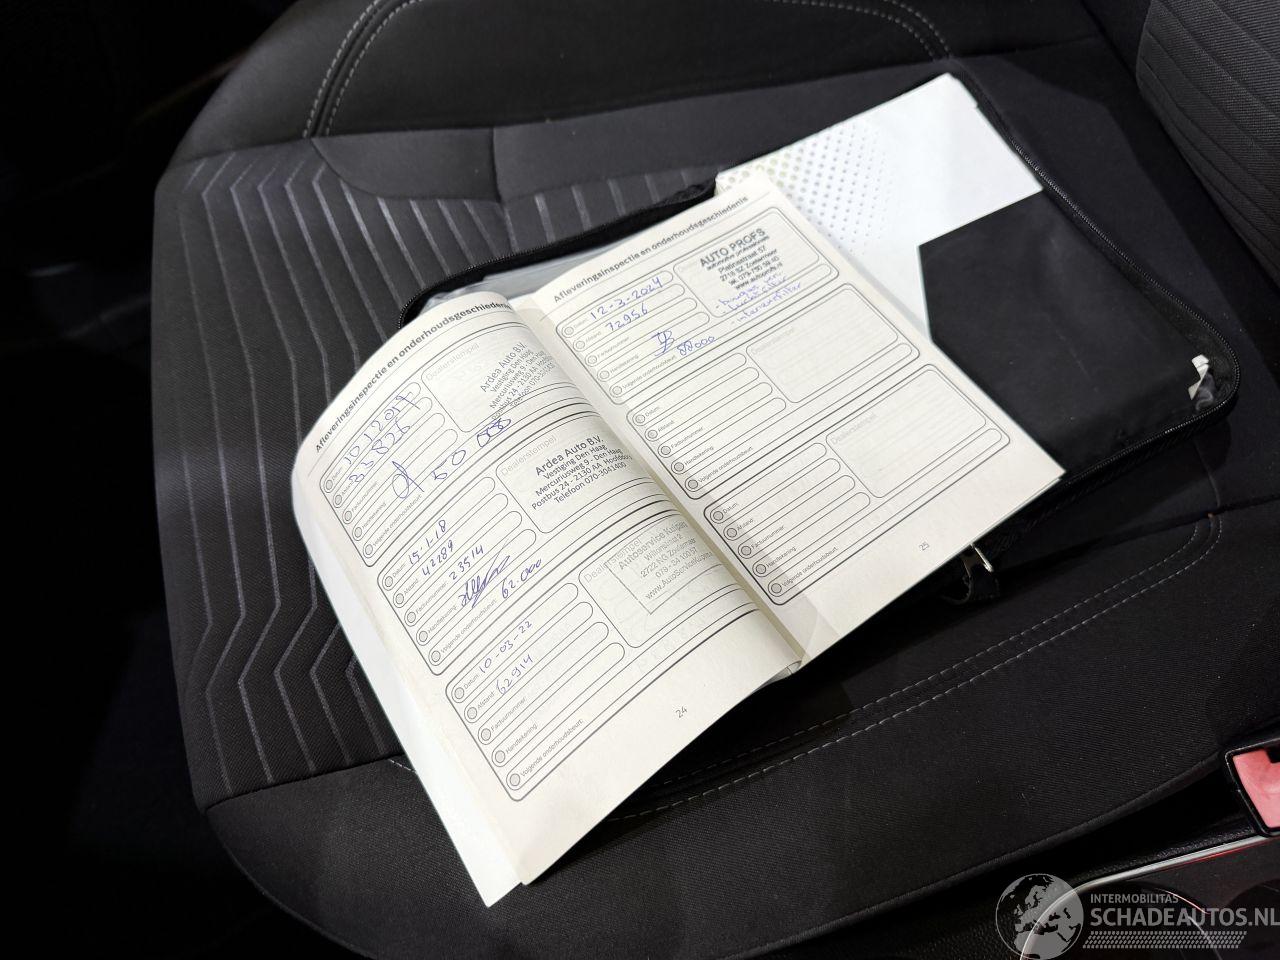 Afleveringsinspectie en onderhoudsgeschiedenis
Datum: 10 1 2017
Afstand:
Factuurnummer:
Handtekening:
Volgende onderhoudsbeurt: 50
Dealerstempel
Ardea Auto B.V.
Vestiging Den Haag
Mercuriusweg 9 - Den Haag
Postbus 24 - 2130 AA Hoofddorp
Telefoon 070-3041400
Datum: 15-1-18
Afstand: 42289
Factuurnummer: 23514
Handtekening:
Volgende onderhoudsbeurt: 62.000
Dealerstempel
Ardea Auto B.V.
Vestiging Den Haag
Mercuriusweg 9 - Den Haag
Postbus 24 - 2130 AA Hoofddorp
Telefoon 070-3041400
Datum: 10-03-22
Afstand: 62914
Factuurnummer:
Handtekening:
Volgende onderhoudsbeurt:
Dealerstempel
Autoservice
2722 NG Zoetermeer
24
Afleveringsinspectie en onderhoudsgeschiedenis
Datum: 12-3-2024
Afstand: 72956
Factuurnummer:
Handtekening:
Volgende onderhoudsbeurt: 88000
AUTO PROFS
automotive professionals
Platinastraat 57
2718 SZ Zoetermeer
tel. 079-750 59 40
www.autoprofs.nl
- luchtfilter
- interieurfilter
Datum:
Afstand:
Factuurnummer:
Handtekening:
Volgende onderhoudsbeurt:
Dealerstempel
Datum:
Afstand:
Factuurnummer:
Handtekening:
Volgende onderhoudsbeurt:
Dealerstempel
25
INTERMOBILITAS
SCHADEAUTOS.NL